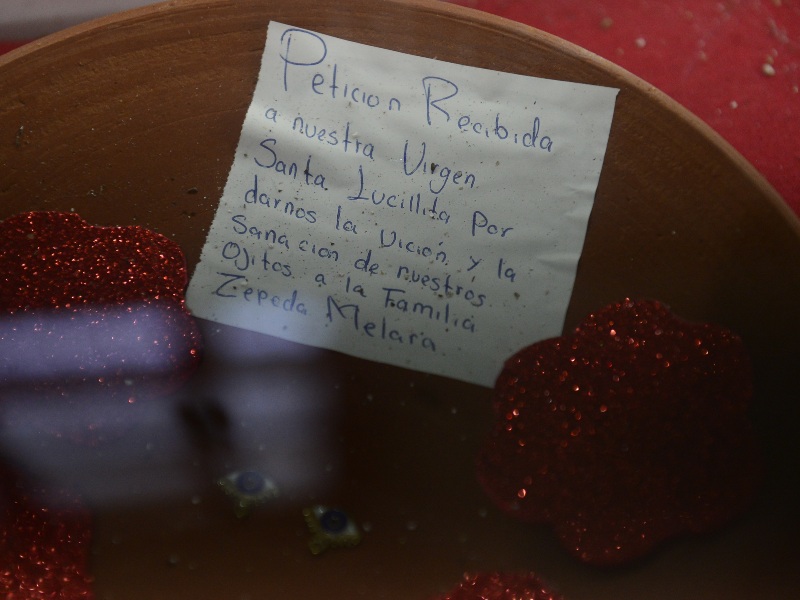 Peticion Recibida
a nuestra Virgen
Santa Lucillita Por
darnos la Vición y la
Sanación de nuestros
Ojitos a la Familia
Zepeda Melara